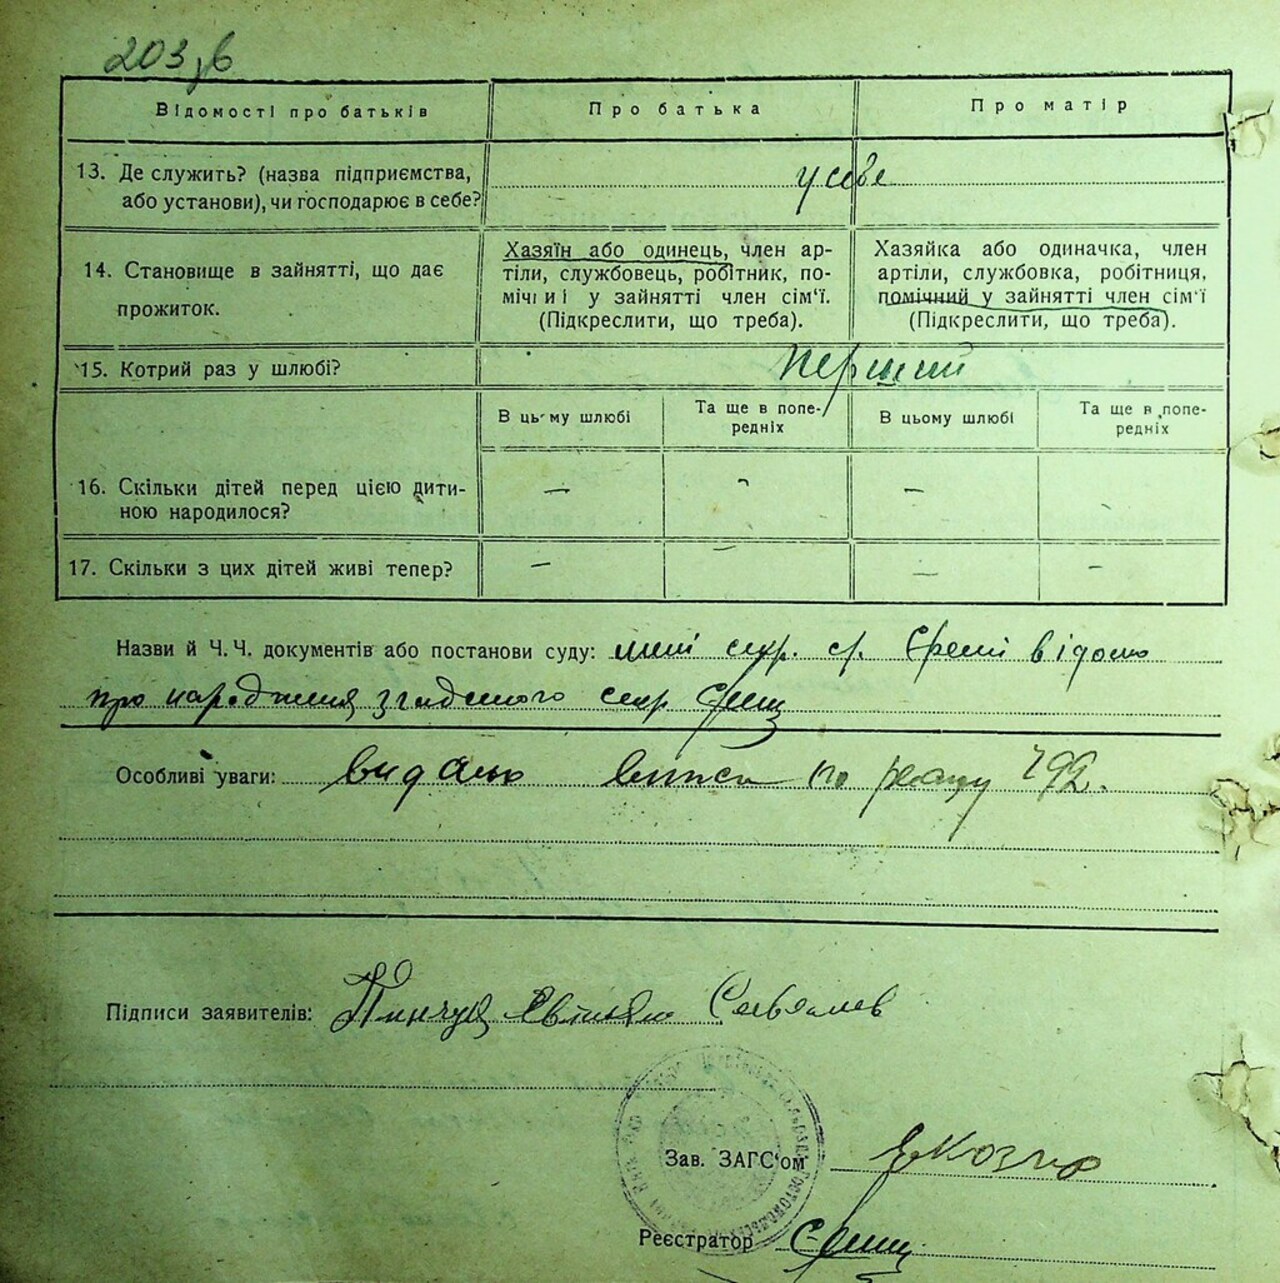 203 зв
Відомості про батьків
Про батька
Про матір
13. Де служить? (назва підприємства,
або установи), чи господарює в себе?
у себе
14. Становище в зайнятті, що дає
прожиток.
Хазяїн або одинець, член ар-
тіли, службовець, робітник, по-
мічний у зайнятті член сім'ї.
(Підкреслити, що треба).
Хазяйка або одиначка, член
артіли, службовка, робітниця,
помічний у зайнятті член сім'ї
(Підкреслити, що треба).
15. Котрий раз у шлюбі?
перший
В цьому шлюбі
Та ще в попе-
редніх
В цьому шлюбі
Та ще в попе-
редніх
16. Скільки дітей перед цією дити-
ною народилося?
— — —
17. Скільки з цих дітей живі тепер?
— — — —
Назви й Ч.Ч. документів або постанови суду: мені секр. с/р. відомо
про народження згаданого секр
Особливі уваги: видано по 792.
Підписи заявителів: Пинчук
Зав. ЗАГС'ом Козло
Реєстратор